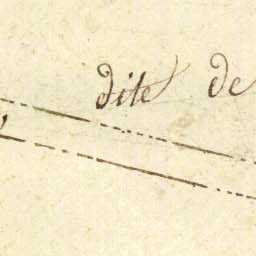 dite de